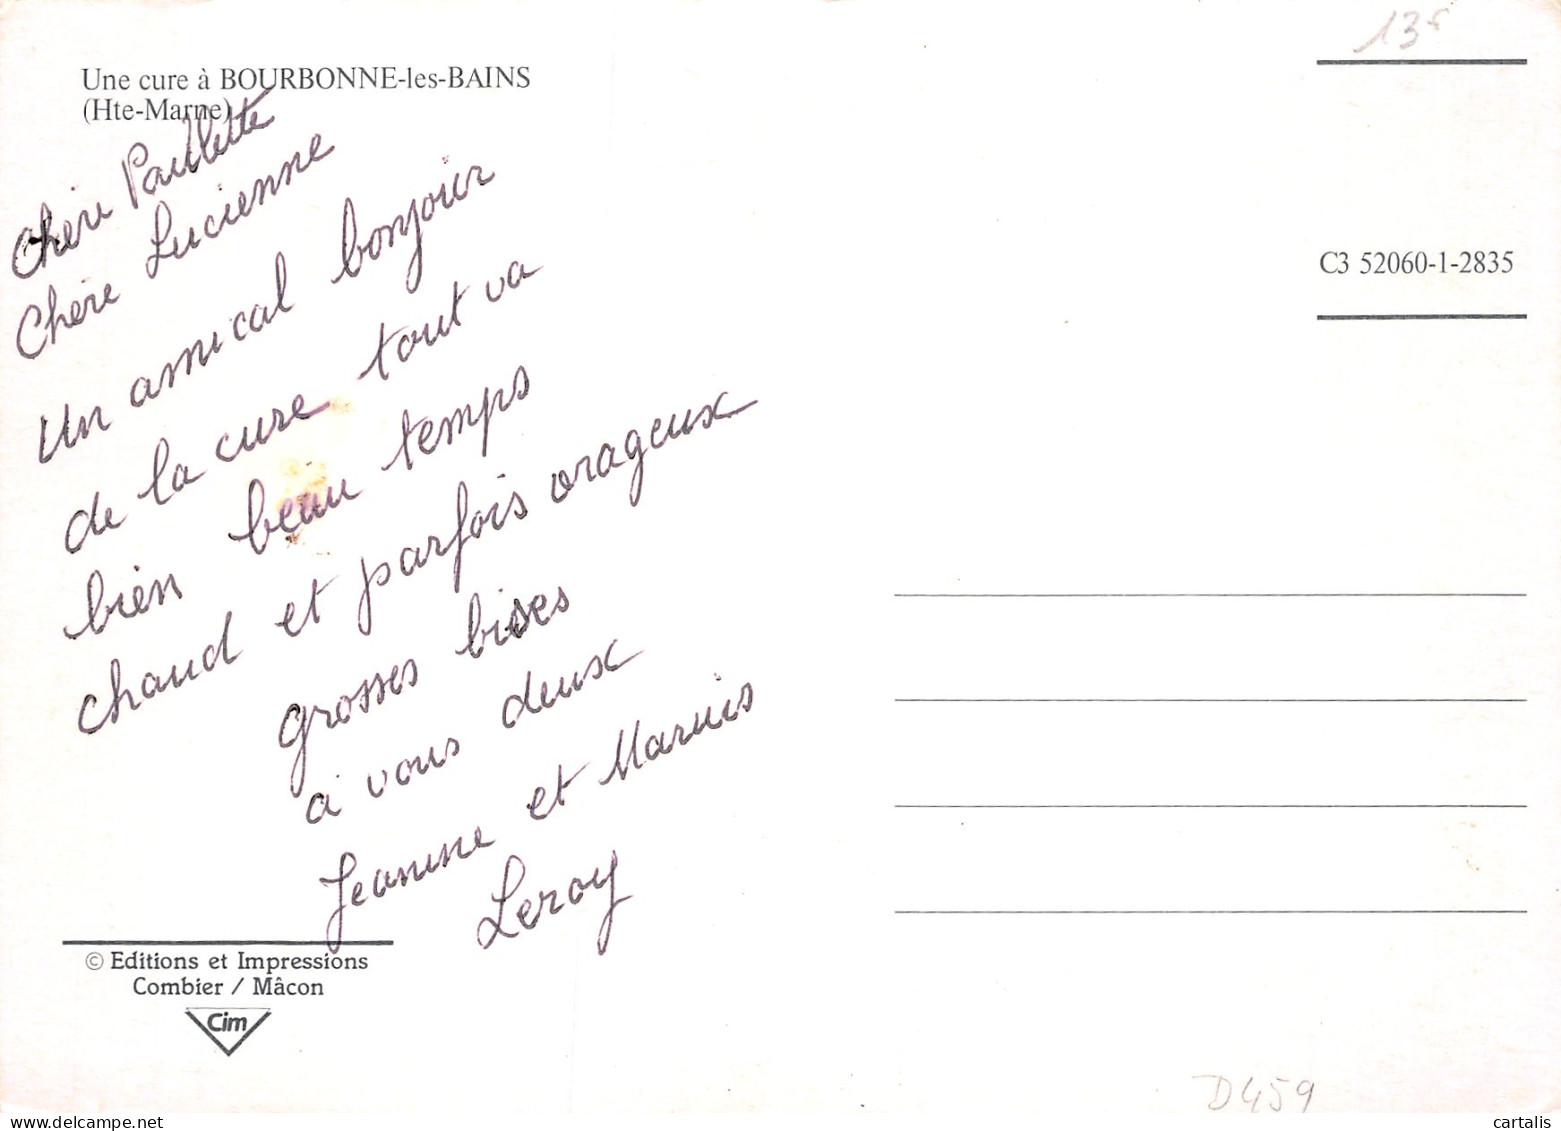 13F
Une cure à BOURBONNE-les-BAINS
(Hte-Marne)
Chère Paullette
Chère Lucienne
Un amical bonjour
de la cure tout va
bien beau temps
chaud et parfois orageux
grosses bises
à vous deux
Jeanine et Marius
Leroy
C3 52060-1-2835
© Editions et Impressions
Combier / Mâcon
Cim
D459
delcampe.net
cartalis